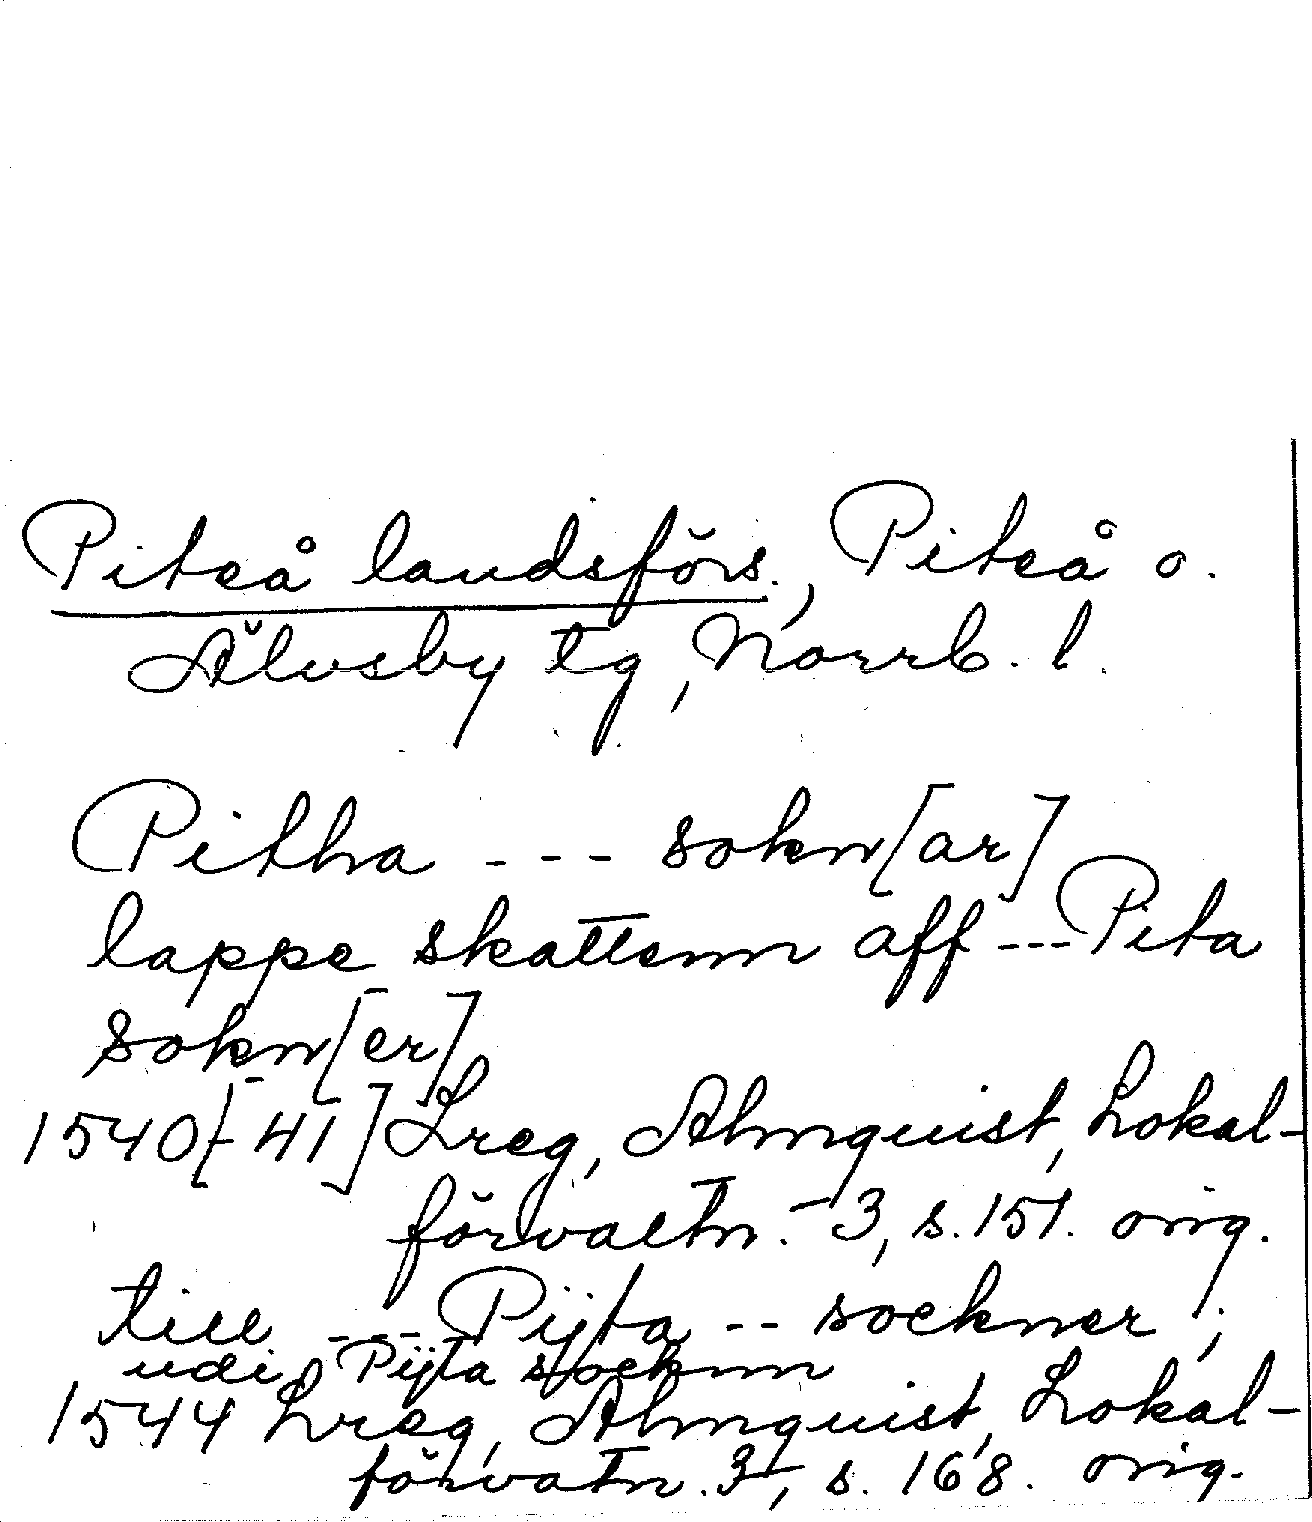 Piteå landsförs., Piteå o.
Älvsby tg, Norrb. l.
Pitha --- sokn[ar]
lappe skattenn aff --- Pita
sokn[er]
1540[-41] Lreg, Almquist, Lokal-
förvaltn. 3, s. 151. orig.
till --- Pijta -- sockner;
udi Pijta socknn
1544 Lreg, Almquist, Lokal-
förvatn. 3, s. 168. orig.